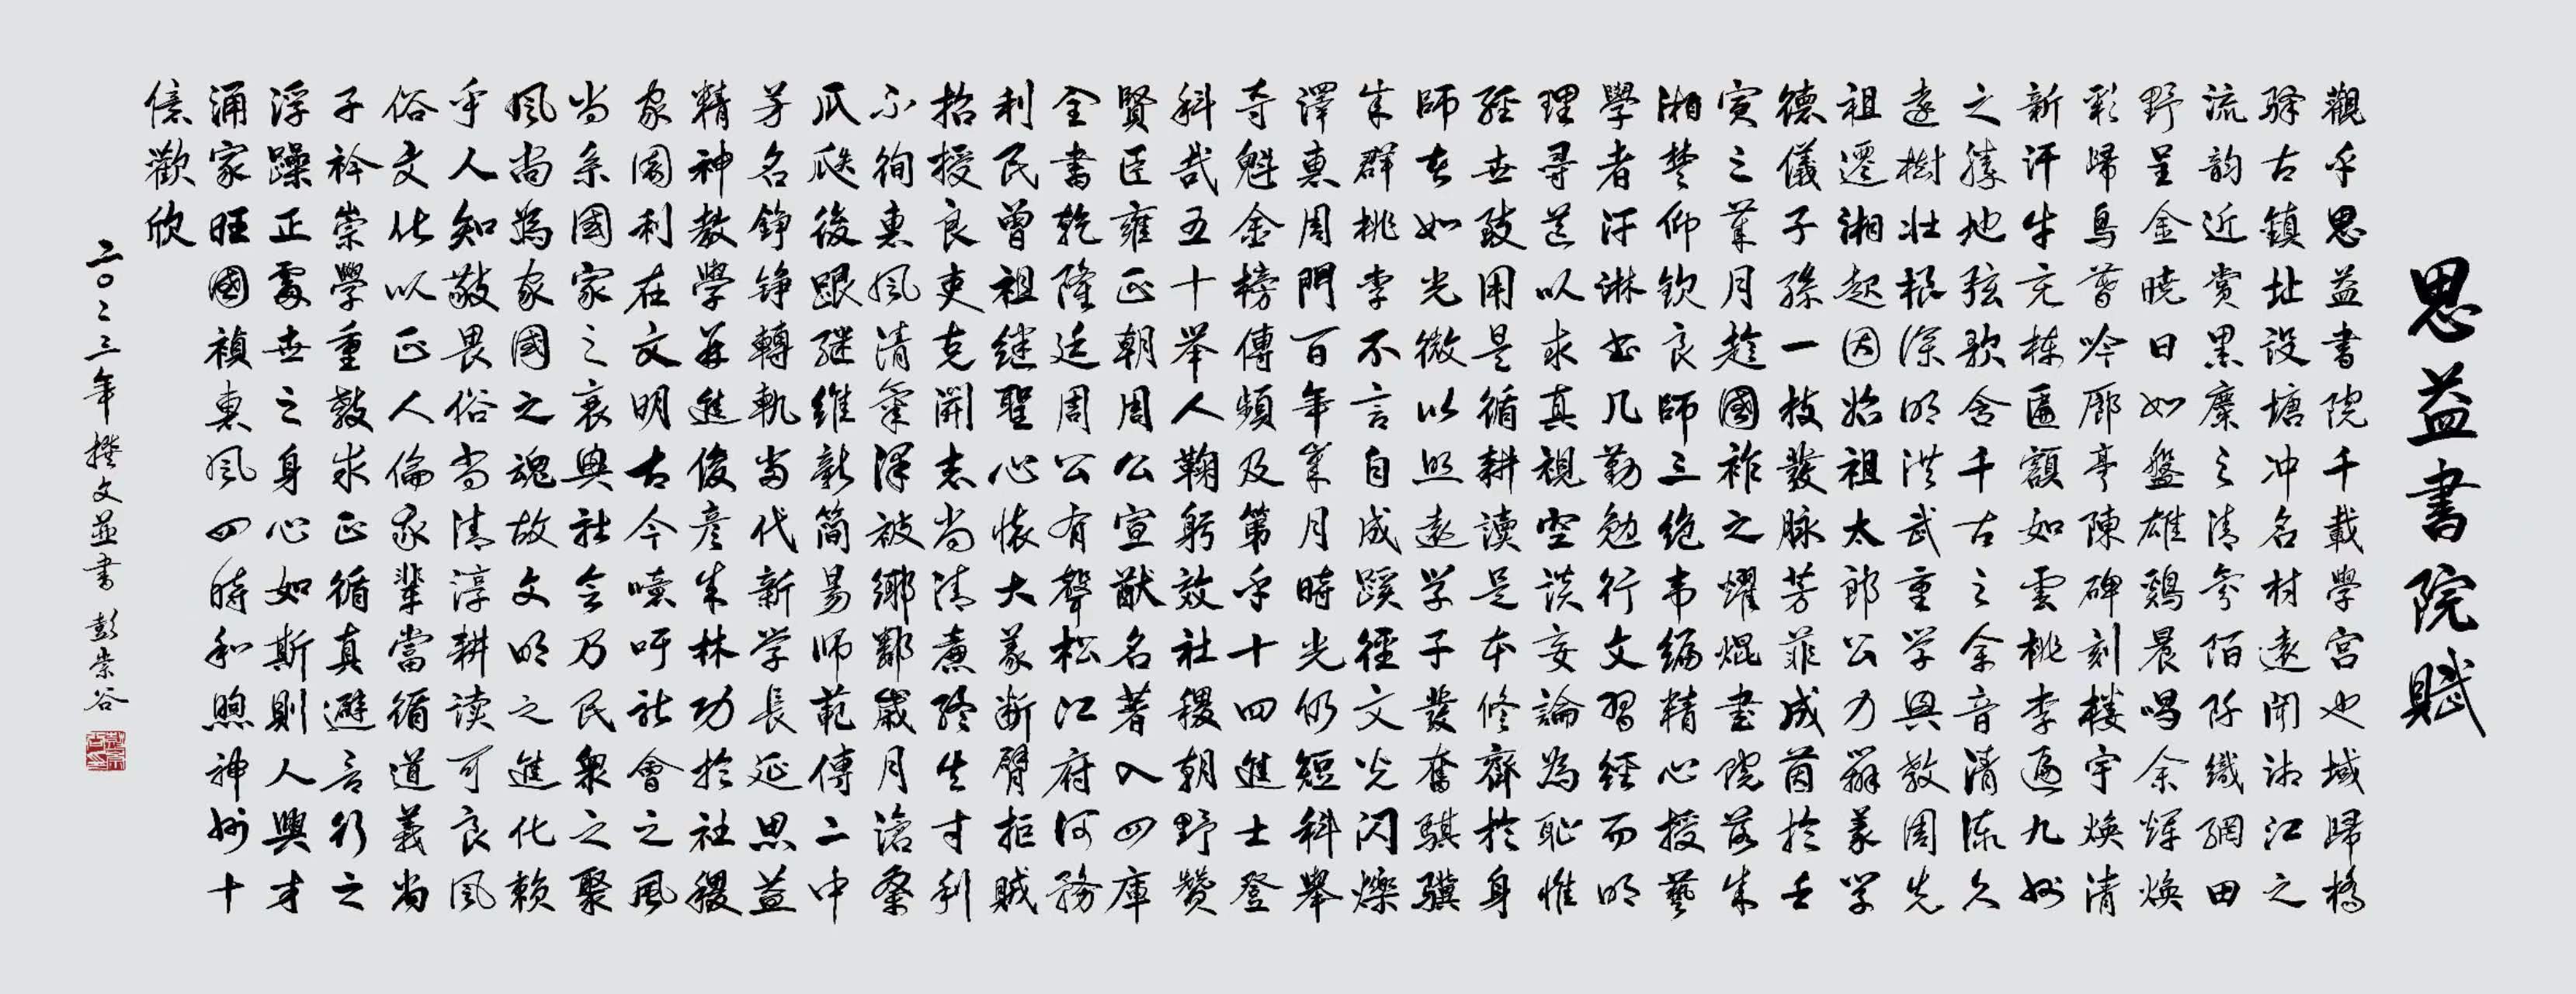 思益書院賦
觀乎思益書院千載學宮也域歸橋
驿古鎮址設塘冲名村遠聞湘江之
流韵近赏黑麋之清芬陌阡織綱田
野呈金曉日如盤雄鷄晨唱余輝煥
彩歸鳥暮吟廊亭陳碑刻樓宇煥清
新汗牛充棟匾額如雲桃李遍九州
之勝地弦歌含千古之余音清流久
遠樹壯根深明洪武重学興教周先
祖遷湘起因始祖太郎公力辦義学
德儀子孫一枝發脉芳菲成茵於壬
寅之葉月趁國祚之耀焜書院落成
湘楚仰欽良師三絶韦編精心授藝
學者汗淋書几勤勉行文習經而明
理尋道以求真視空談妄論為耻惟
經世致用是循耕读是本修齊於身
師者如光微以照遠学子發奮騏驥
成群桃李不言自成蹊徑文光闪爍
澤惠周門百年業月時光仍短科舉
夺魁金榜傳頻及第乎十四進士登
科哉五十举人鞠躬效社稷朝野贊
賢臣雍正朝周公宣猷名著入四庫
全書乾隆廷周公有聲松江府河務
利民曾祖继聖心懷大義断臂拒贼
招授良吏克開志尚清廉终生寸利
不徇惠风清氣泽被鄉鄰歲月滄桑
瓜瓞後跟继維新简易师範傳二中
芳名錚錚轉軌当代新学長延思益
精神教學并進俊彦成林功於社稷
家国利在文明古今嘆吁社會之風
尚系國家之衰興社会乃民衆之聚
風尚為家國之魂故文明之進化赖
乎人知敬畏俗尚清淳耕读可良风
俗文化以正人倫家輩當循道義尚
子衿崇學重教求正循真避言行之
浮躁正處世之身心如斯則人興才
涌家旺國禎惠风四時和煦神州十
億歡欣
二〇二三年撰文並書 彭崇谷